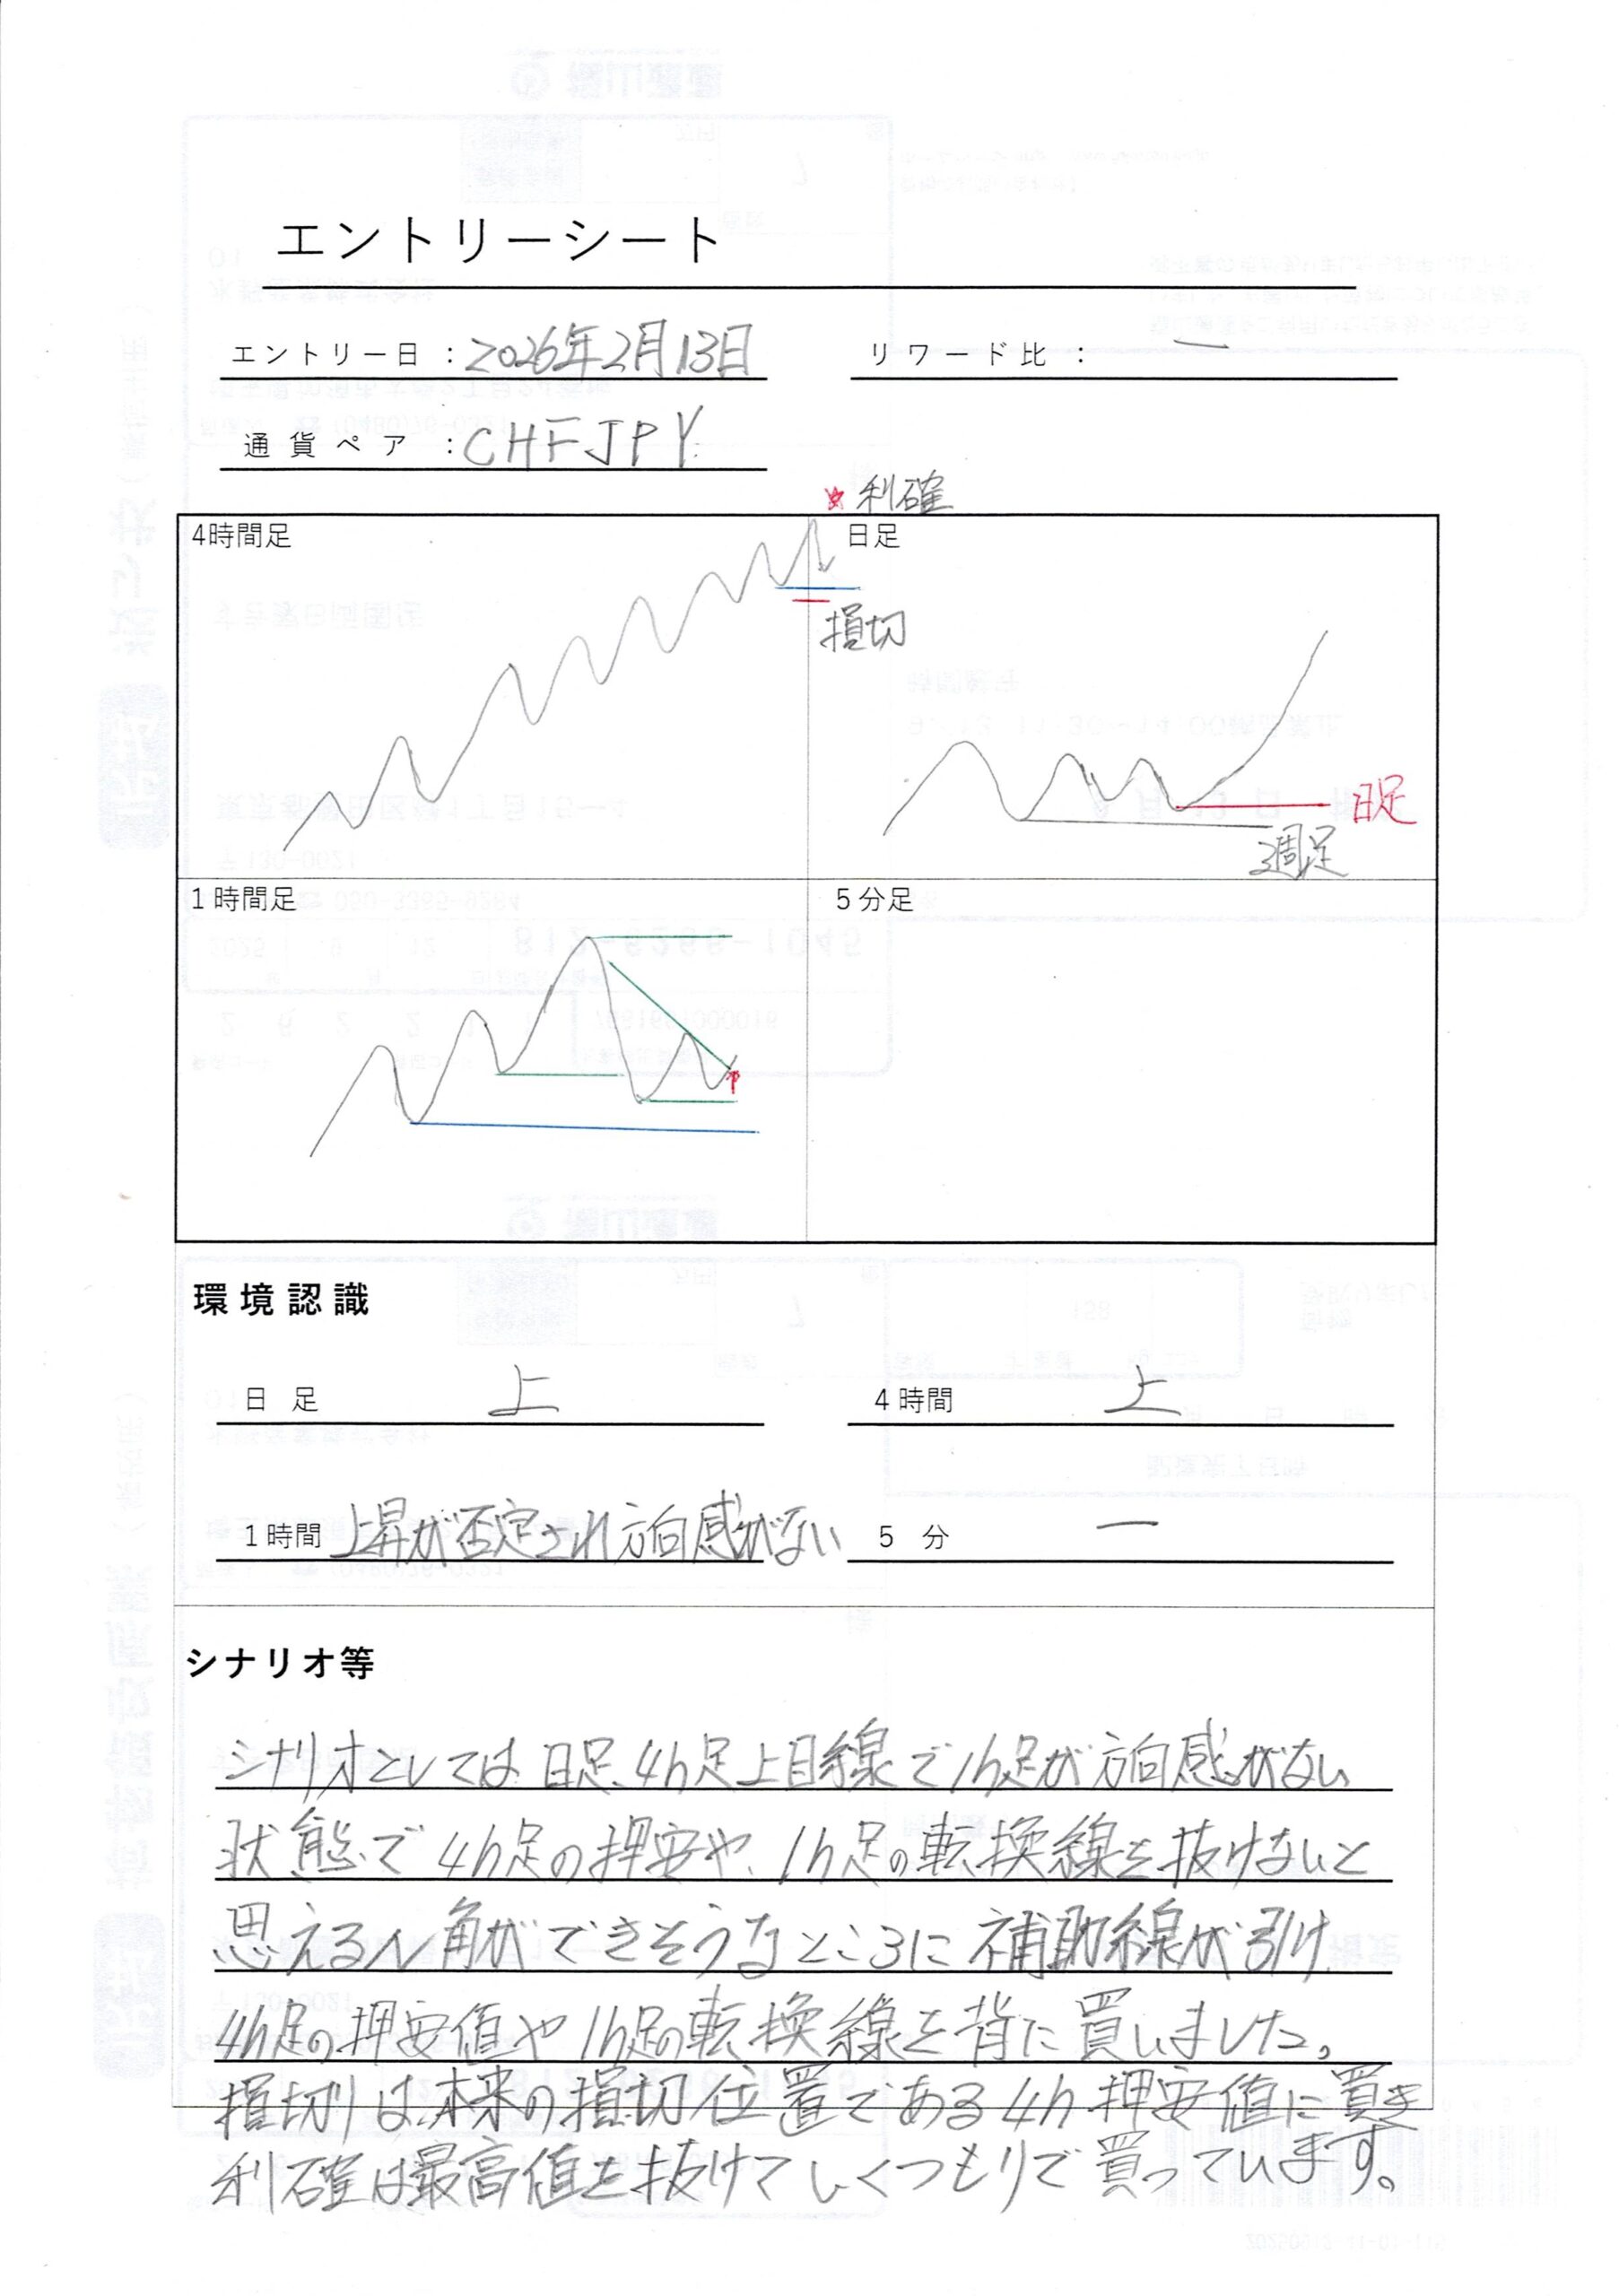 エントリーシート
エントリー日 : 2026年2月13日
リワード比 : ー
通貨ペア : CHFJPY
利確
4時間足
日足
損切
日足
週足
1時間足
5分足
環境認識
日足 上
4時間 上
1時間 上昇が否定され方向感がない
5分 ー
シナリオ等
シナリオとしては日足、4h足上目線で1h足が方向感がない
状態で4h足の押安や、1h足の転換線を抜けないと
思えるN角ができそうなところに補助線が引け、
4h足の押安値や1h足の転換線を背に買いました。
損切りは本来の損切位置である4h押安値に置き
利確は最高値を抜けていくつもりで買っています。